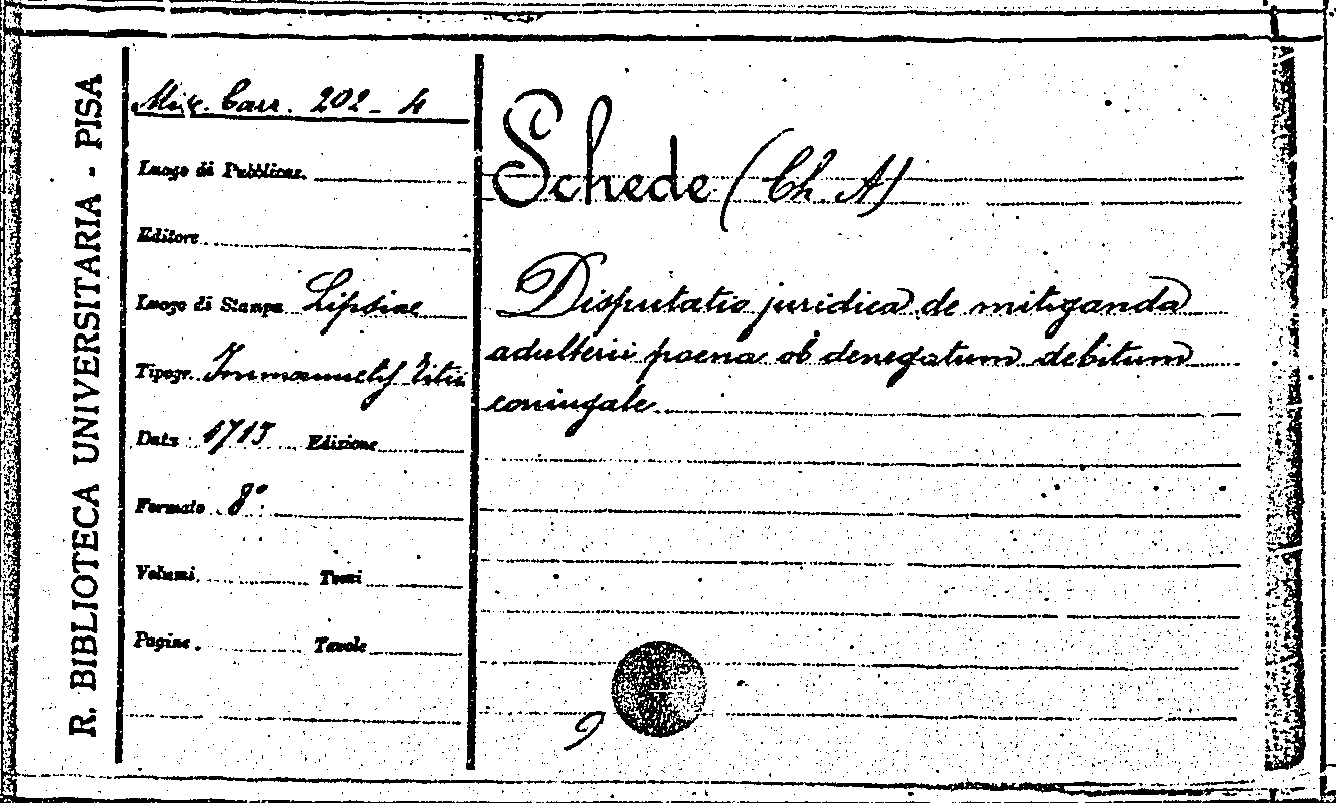 R. BIBLIOTECA UNIVERSITARIA - PISA
Misc. Carr. 202 - 4
Luogo di Pubblicaz.
Editore
Luogo di Stampa Lipsiae
Tipogr. Immanuelis Titii
Data 1713 Edizione
Formato 8°
Volumi Tomi
Pagine Tavole
Schede (Ch. A)
Disputatio juridica de mitiganda
adulterii paena ob denegatum debitum
coniugale
9